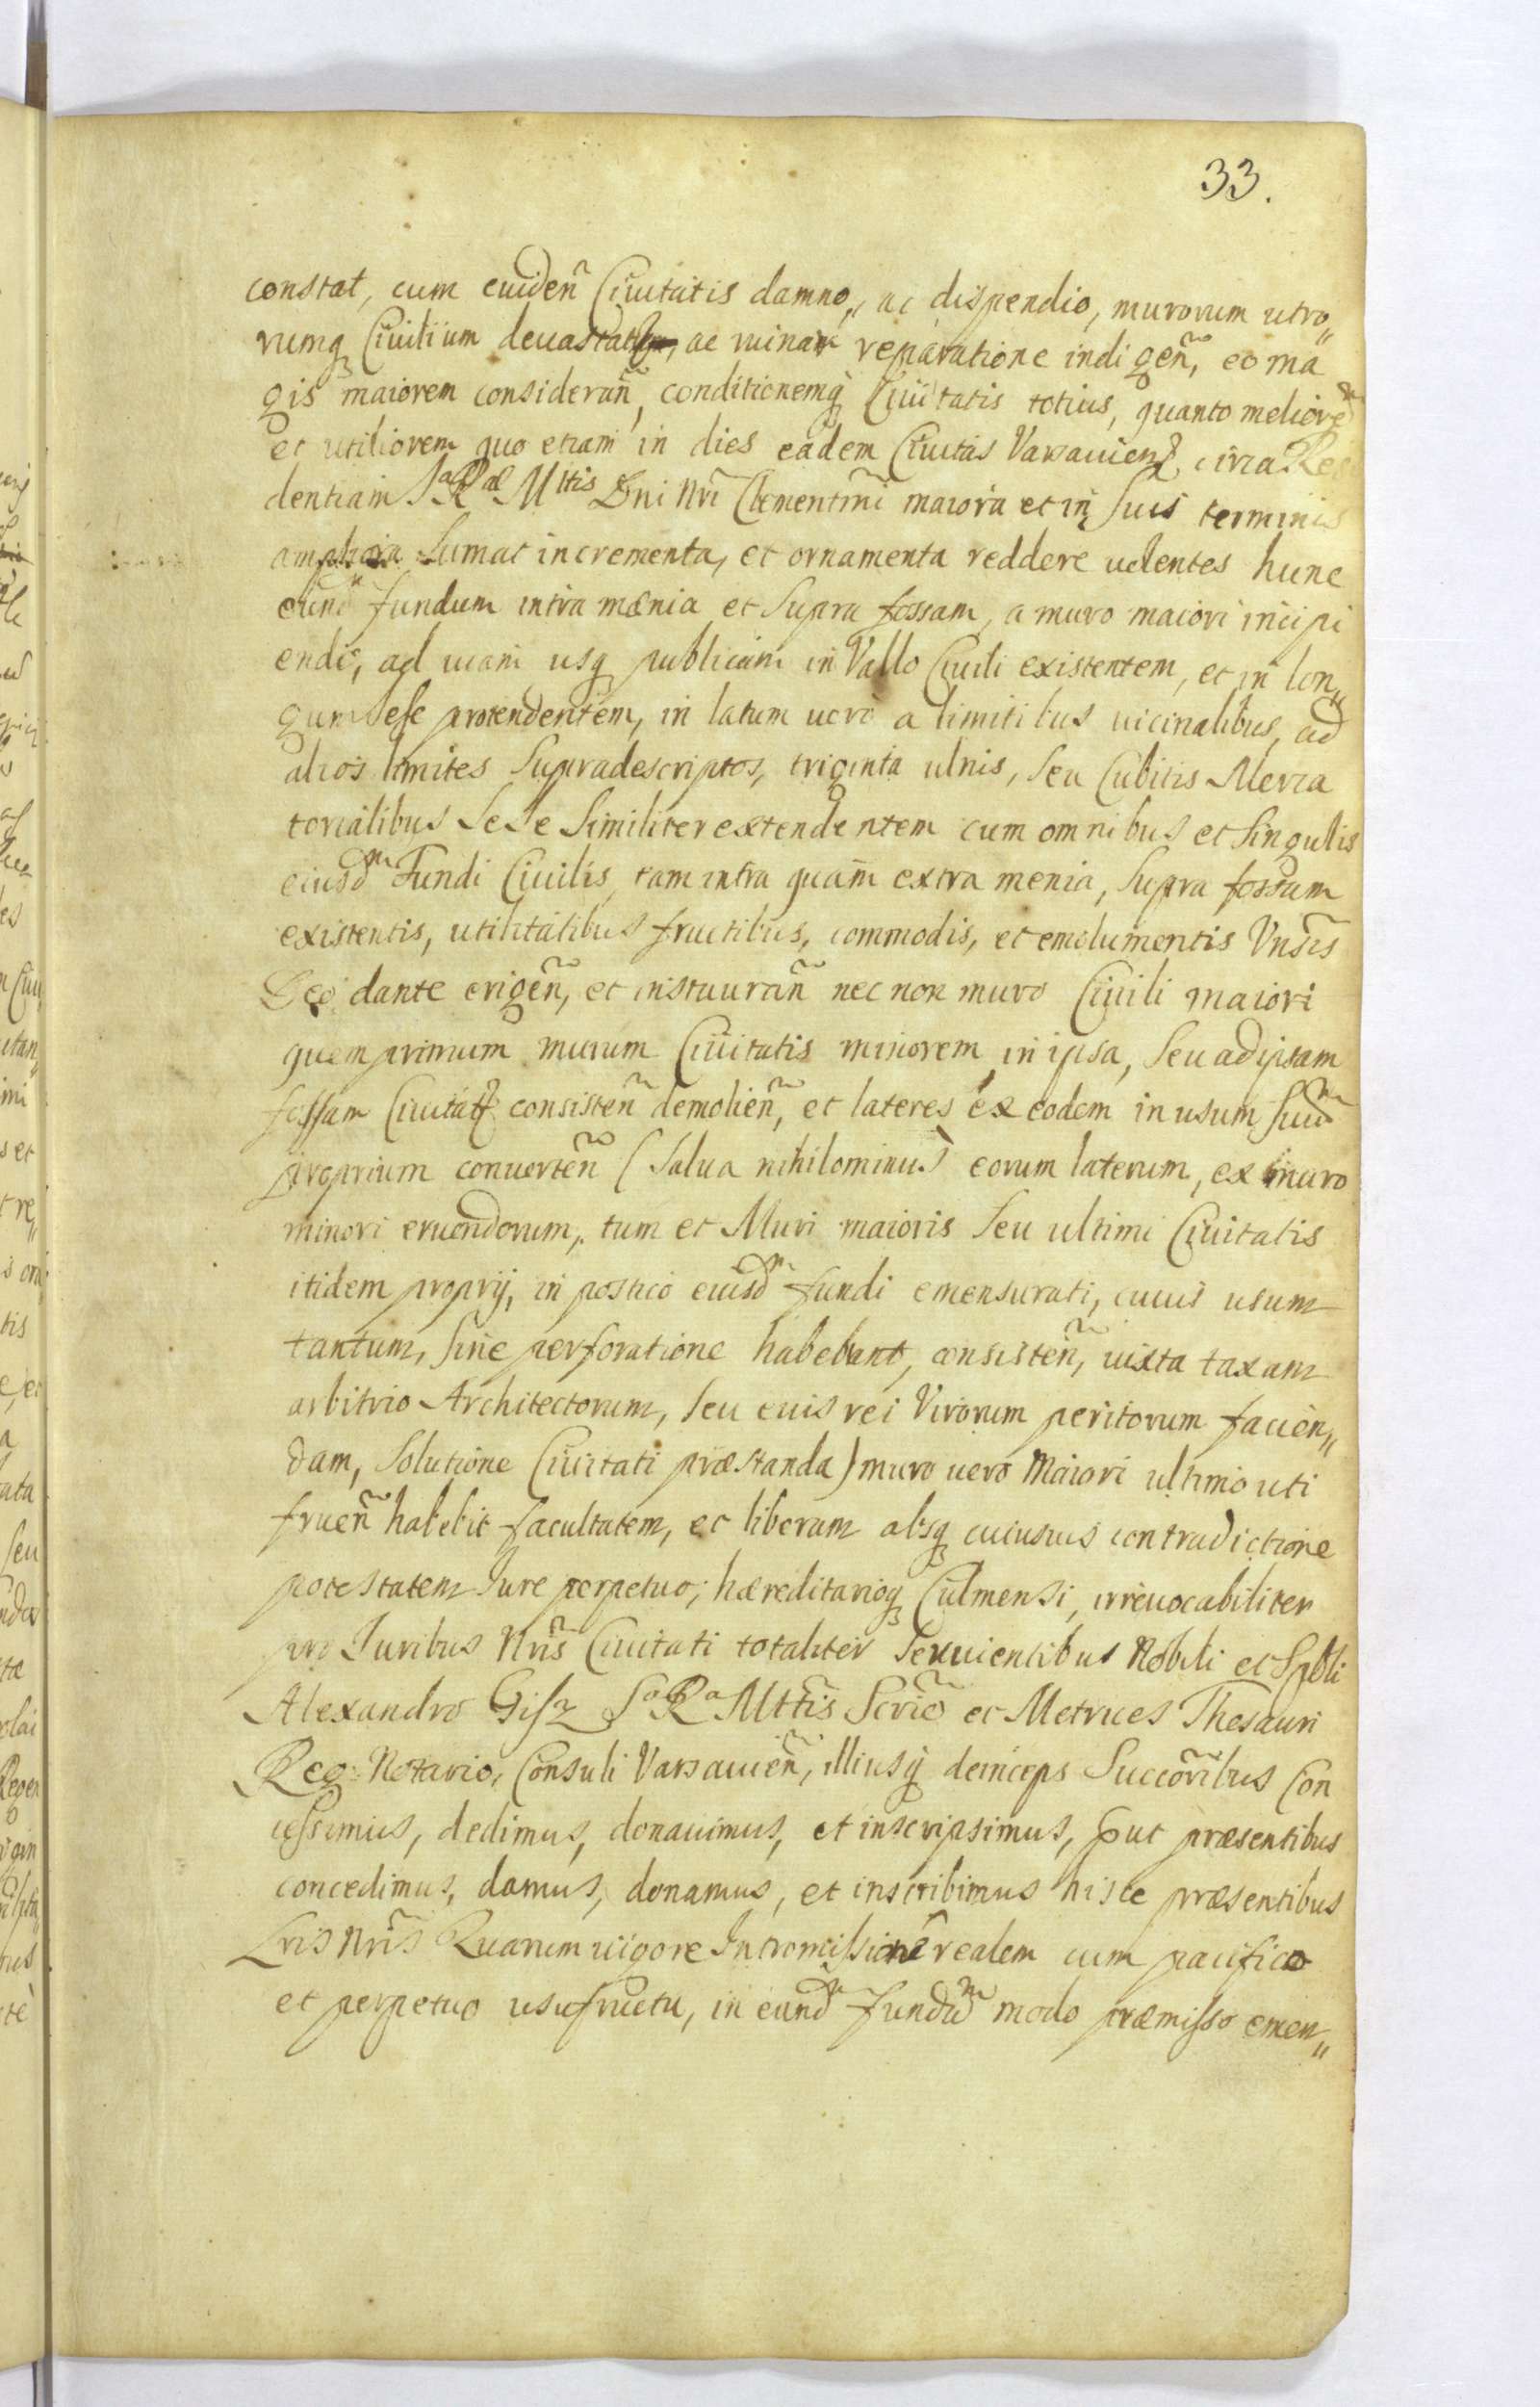 33.
constat, cum euideñ Ciuitatis damno, ac dispendio, murorum utro„
rumq Ciuilium deuastat, ac ruinar reparatione indigeñ, eo ma
gis maiorem considerañ, conditionemq Ciuitatis totius, quanto meliorem
et utiliorem quo etiam in dies eadem Ciuitas Varsauien, circa Re
dentiam SaRae Mttis Dni Nri Clementmi maiora et in suis terminis
ampliora sumat incrementa, et ornamenta reddere uolentes hunc
eund fundum intra mænia et supra fossam, a muro maiori incipi
endo, ad uiam usq publicam in Vallo Ciuili existentem, et in lon„
gum sese protendentem, in latum uero a limitibus uicinalibus, ad
alios limites supradescriptos, triginta ulnis, seu Cubitis Merca
torialibus sese similiter extendentem cum omnibus et singulis
eiusdm Fundi Ciuilis, tam intra quam extra menia, supra fossam
existentis, utilitatibus fructibus, commodis, et emolumentis Vnsis
Deo dante erigeñ, et instaurañ nec non muro Ciuili maiori
quem primum murum Ciuitatis minorem in ipsa, seu ad ipsam
fossam Ciuitat consisteñ demolieñ, et lateres ex eodem in usum suum
proprium conuerteñ (salua nihilominus eorum laterum, ex muro
minori eruendorum, tum et Muri maioris seu ultimi Ciuitatis
itidem proprij, in postico eiusdm fundi emensurati, cuius usum
tantum, sine perforatione habebunt, consisteñ, iuxta taxam
arbitrio Architectorum, seu euis rei Virorum peritorum facien„
dam, solutione Ciuitati præstanda) muro uero maiori ultimo uti
frueñ habebit facultatem, et liberam absq cuiusuis contradictione
potestatem Iure perpetuo, hæreditarioq Culmensi, irreuocabiliter
pro Iuribus Nris Ciuitati totaliter seruientibus Nobili et Spbli
Alexandro Gisz SaRa Mttis Scrio et Metrices Thesauri
Reg: Notario, Consuli Varsauieñ, illiusq deinceps Succoribus Con
cessimus, dedimus, donauimus, et inscripsimus, put præsentibus
concedimus, damus, donamus, et inscribimus hisce præsentibus
Lris Nris Quarum uigore Intromissione realem cum pacifico
et perpetuo usufructu, in eundm fundum modo præmisso emen„